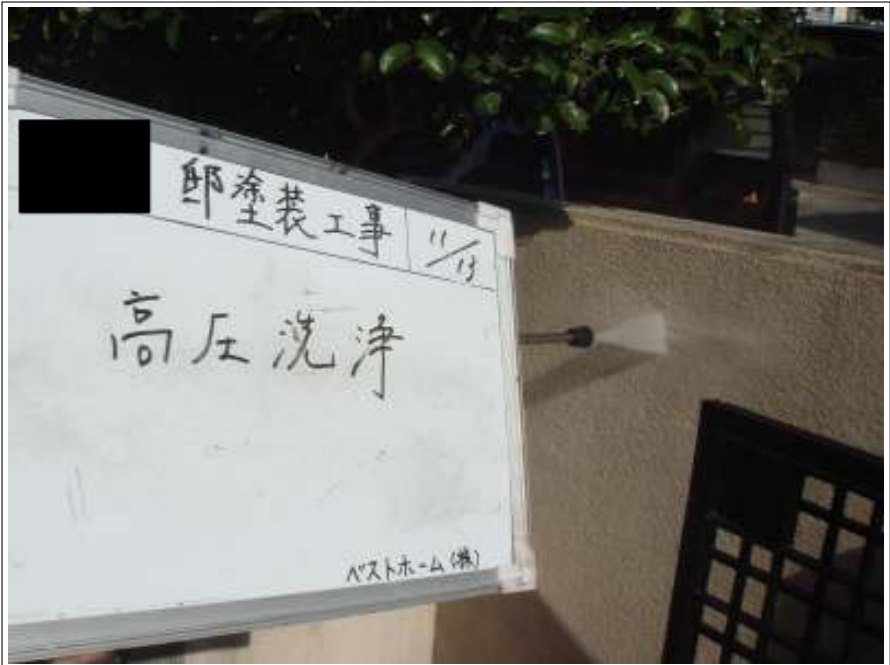 邸塗装工事 11/13
高圧洗浄
ベストホーム(株)